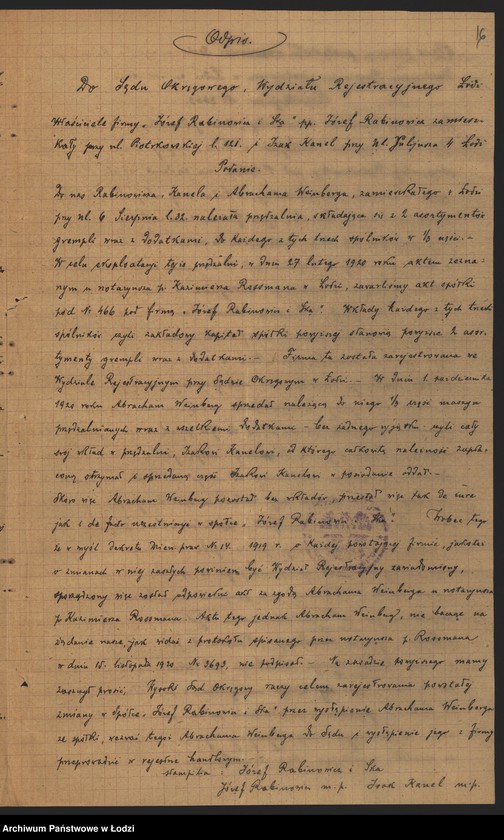 Odpis.
16
Do Sądu Okręgowego, Wydziału Rejestracyjnego Łódź
Właściciele firmy „Józef Rabinowicz i Ska" pp. Józef Rabinowicz zamiesz-
kały przy ul. Piotrkowskiej l. 121. i Izak Kanel przy ul. Juljusza 4 Łódź
Podanie.
Do nas Rabinowicza, Kanela i Abrachama Weinberga, zamieszkałego w Łodzi
przy ul. 6 Sierpnia l. 32 należała przędzalnia, składająca się z 2 asortymentów
grempli wraz z dodatkami, do każdego z tych trzech spólników w 1/3 części.–
W celu eksploatacji tejże przędzalni, w dniu 27 lutego 1920 roku aktem zezna-
nym u notarjusza p. Kazimierza Rossmana w Łodzi, zawarliśmy akt spółki
pod Nr 466 pod firmą „Józef Rabinowicz i Ska". Wkłady każdego z tych trzech
spólników czyli zakładowy kapitał spółki powyższej stanowią powyższe 2 asor-
tymenty grempli wraz z dodatkami.– Firma ta została zarejestrowana we
Wydziale Rejestracyjnym przy Sądzie Okręgowym w Łodzi.– W dniu 1. października
1920 roku Abracham Weinberg sprzedał należącą do niego 1/3 część maszyn
przędzalnianych wraz z wszelkimi dodatkami – bez żadnego wyjątku – czyli cały
swój wkład w przędzalni, Izakowi Kanelowi, od którego całkowitą należność zapła-
coną otrzymał i sprzedaną część Izakowi Kanelowi w posiadanie oddał.–
Skoro więc Abracham Weinberg pozostał bez wkładów, przestał więc tak de iure
jak i de facto uczestniczyć w spółce „Józef Rabinowicz i Ska". Wobec tego
że w myśl Dekretu Dzien. praw Nr. 14. 1919 r. o każdej powstającej firmie, jakoteż
o zmianach w niej zaszłych powinien być Wydział Rejestracyjny zawiadomiony,
sporządzony więc został odpowiedni akt za zgodą Abrachama Weinberga u notarjusza
p. Kazimierza Rossmana. Aktu tego jednak Abracham Weinberg, nie bacząc na
żądanie nasze, jak widać z protokółu spisanego przez notarjusza p. Rossmana
w dniu 15. listopada 1920. Nr. 3693, nie podpisał.– Na zasadzie powyższego mamy
zaszczyt prosić, Wysoki Sąd Okręgowy raczy celem zarejestrowania powstałej
zmiany w spółce „Józef Rabinowicz i Ska" przez wystąpienie Abrachama Weinberga
ze spółki, wezwać tegoż Abrachama Weinberga do Sądu i wystąpienie jego z firmy
przeprowadzić w rejestrze handlowym.
stampilia: Józef Rabinowicz i Ska
Józef Rabinowicz m. p. Izak Kanel m. p.
Archiwum Państwowe w Łodzi